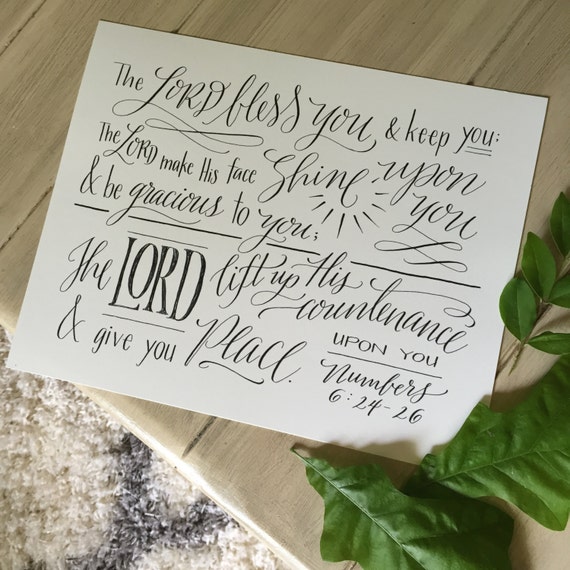 The LORD bless you & keep you;
The LORD make His face Shine upon
& be gracious to you; you
The LORD lift up His
countenance
& give you Peace. UPON YOU
Numbers
6:24-26